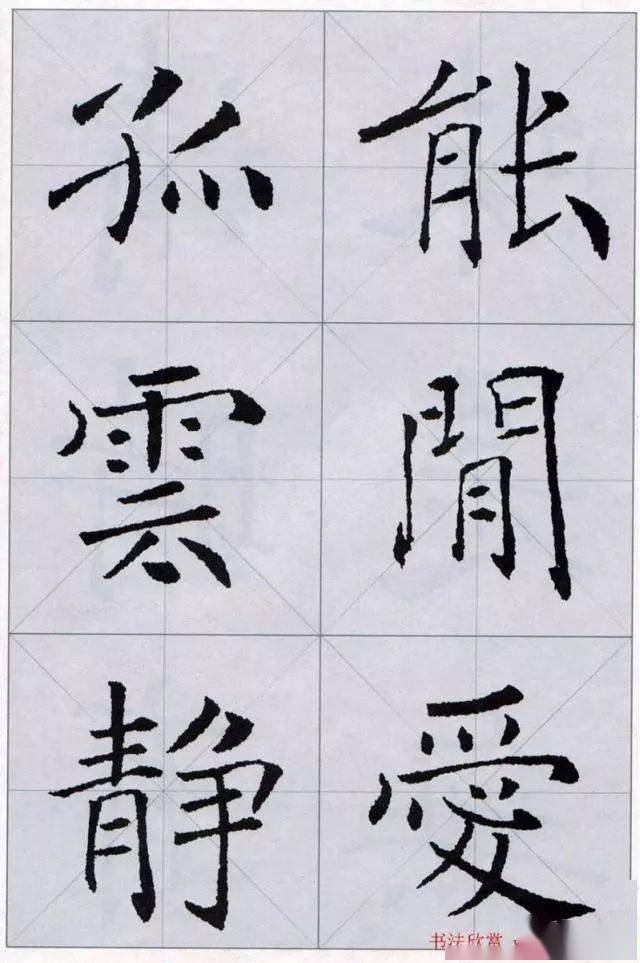 能閒愛
孤雲静
书法欣赏